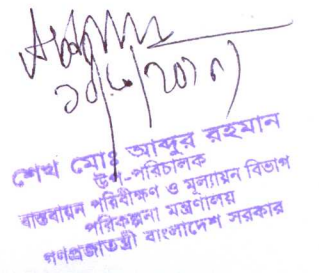 শেখ মোঃ আব্দুর রহমান
উপ-পরিচালক
বাস্তবায়ন পরিবীক্ষণ ও মূল্যায়ন বিভাগ
পরিকল্পনা মন্ত্রণালয়
গণপ্রজাতন্ত্রী বাংলাদেশ সরকার